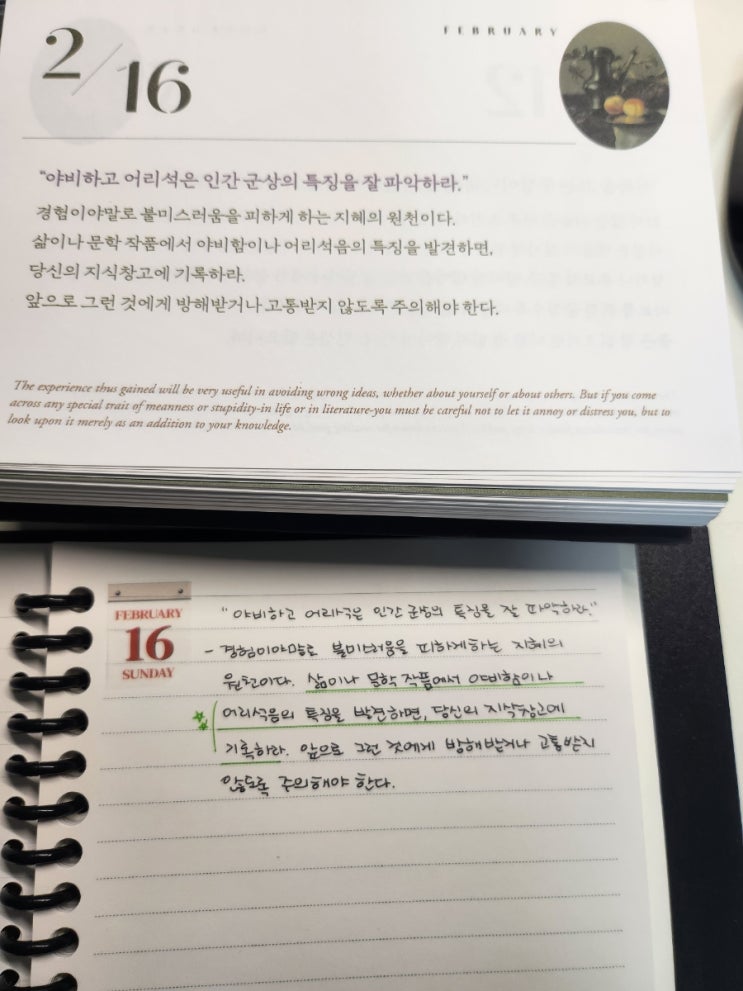 FEBRUARY
2/16
"야비하고 어리석은 인간 군상의 특징을 잘 파악하라."
경험이야말로 불미스러움을 피하게 하는 지혜의 원천이다.
삶이나 문학 작품에서 야비함이나 어리석음의 특징을 발견하면,
당신의 지식창고에 기록하라.
앞으로 그런 것에게 방해받거나 고통받지 않도록 주의해야 한다.
The experience thus gained will be very useful in avoiding wrong ideas, whether about yourself or about others. But if you come
across any special trait of meanness or stupidity-in life or in literature-you must be careful not to let it annoy or distress you, but to
look upon it merely as an addition to your knowledge.
FEBRUARY
16
SUNDAY
"야비하고 어리석은 인간 군상의 특징을 잘 파악하라."
- 경험이야말로 불미스러움을 피하게하는 지혜의
원천이다. 삶이나 문학 작품에서 야비함이나
어리석음의 특징을 발견하면, 당신의 지식창고에
기록하라. 앞으로 그런 것에게 방해받거나 고통받지
않도록 주의해야 한다.